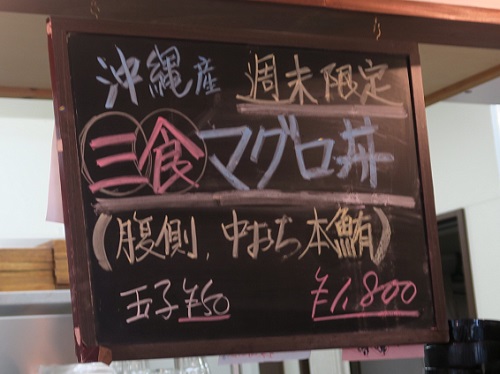 沖縄産 週末限定
三食マグロ丼
(腹側、中おち本鮪)
玉子¥50 ¥1,800